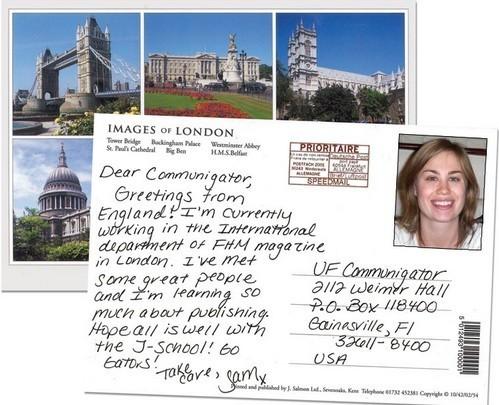 IMAGES OF LONDON
Tower Bridge Buckingham Palace Westminster Abbey
St. Paul's Cathedral Big Ben H.M.S.Belfast
Dear Communigator,
Greetings from
England! I'm currently
working in the International
department of FHM magazine
in London. I've met
some great people
and I'm learning so
much about publishing.
Hope all is well with
the J-School! Go
Gators!
Take
care, Sam x
PRIORITAIRE
Deutsche Post
ALLEMAGNE
SPEEDMAIL
UF Communigator
2112 Weimer Hall
P.O. Box 118400
Gainesville, Fl
32611-8400
USA
Printed and published by J. Salmon Ltd., Sevenoaks, Kent Telephone 01732 452381 Copyright © 10/42/02/54